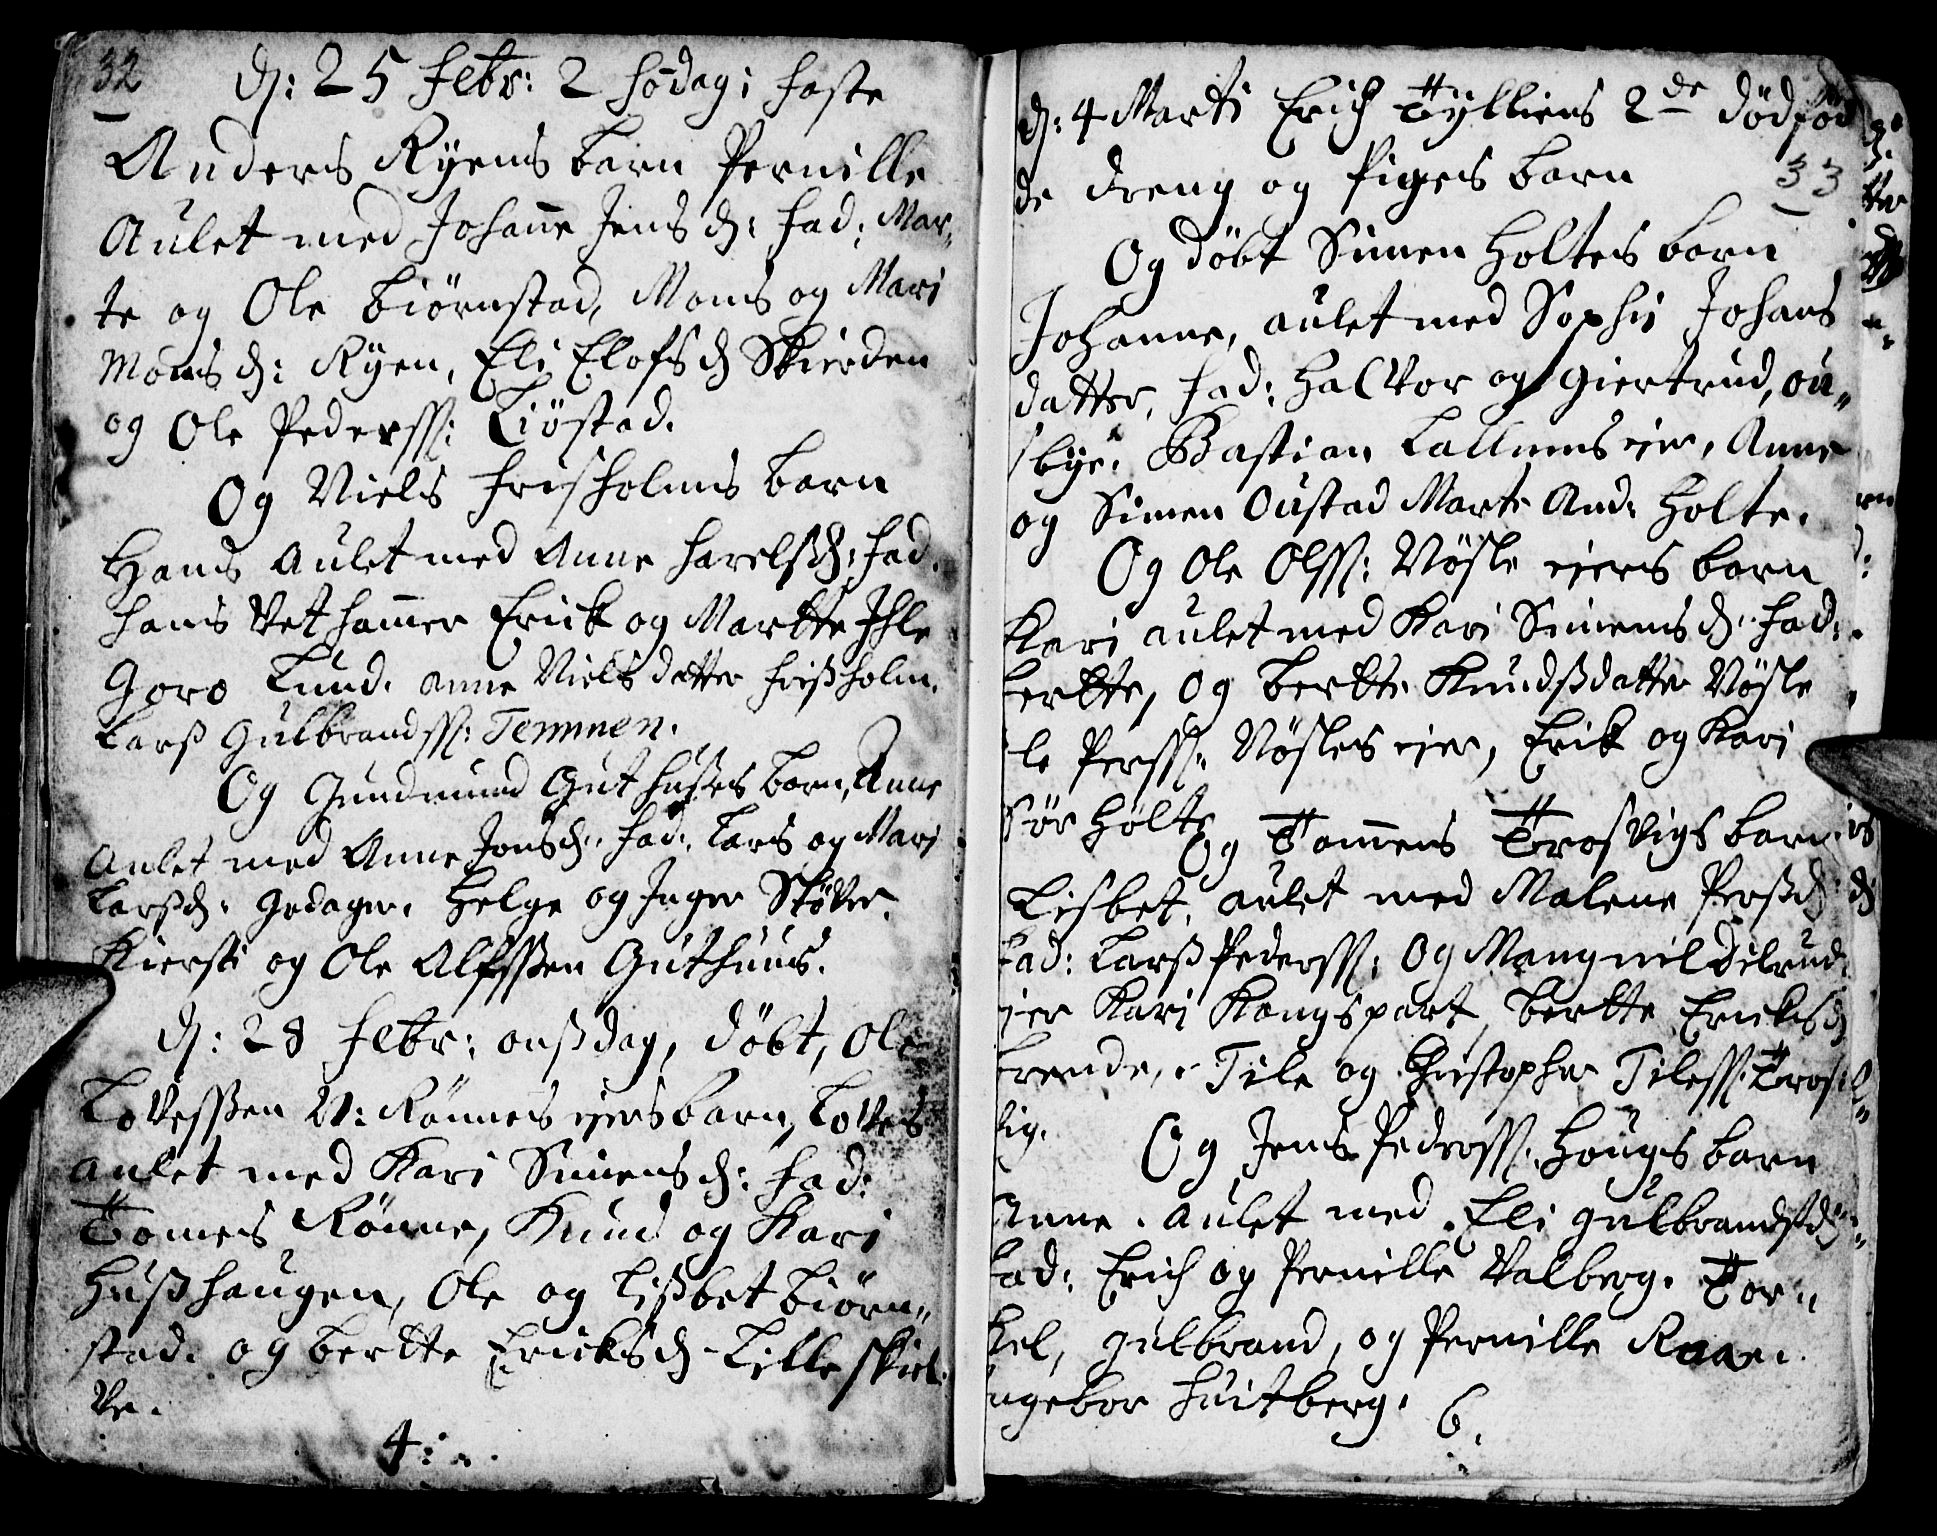 32
D: 25 Febr: 2 Södag i faste
Anders Ryens barn Pernille
Aulet med Johanne Jens D: fad: Mar-
te og Ole Biørnstad, Mons og Mari
Moms D: Ryen, Eli Elofs D Skierden
og Ole Pederss: Liöstad.
Og Niels Frisholms barn
Hans Aulet med Anne Harelsd: fad.
Hans Vethamer Erick og Martte Ihle
Goro Lund. Anne Niels datter Frissholm.
Larss Gulbrandss: Temmen.
Og Gundmund Guthuses barn, Anne
Aulet med Anne Jonsd: fad: Lars og Mari
Larssd: Godager. Helge og Inger Stöver.
Kiersti og Ole Alfssen Guthuus.
D: 28 Febr: onssdag, döbt, Ole
Lovessen N: Rönnes eiers barn, Loves
aulet med Kari Simens D: fad:
Tomes Rönne, Knud og Kari
Husshaugen, Ole og Lissbet Biørn-
stad. og bertte Ericks D Lille skiel
ve.
4:
D: 4 Marti Erich Tylliens 2de dödfød
de dreng og Piges barn
33
Og döbt Simen Holtes barn
Johanne, aulet med Sophi Johans
datter, fad: Halvor og Giertrud, ou-
sbye. Bastian Lallums eie, Anne
og Simen Oustad Marte And: Holte.
Og Ole Olss: Nøsle eiers barn
Kari aulet med Kari Simens D: fad:
bertte, og bertte Knudssdatter Nøsle
le Perss: Nøsles eie, Erik og Kari
Sør Hølte
Og Tommes Trosvigs barn
Lisbet, aulet med Malene Perssd:
fad: Larss Pederss: Og Mangnil Dilrud
eier Kari Kongspart, bertte Ericks D
brende, Tile og Christopher Tiless: Tros
vig.
Og Jens Pederss: Hougs barn
Anne. Aulet med Eli Gulbrandssd:
fad: Erich og Pernille Valberg. Tor-
kel, Gulbrand, og Pernille Raae.
ngebor Huitberg.
6.